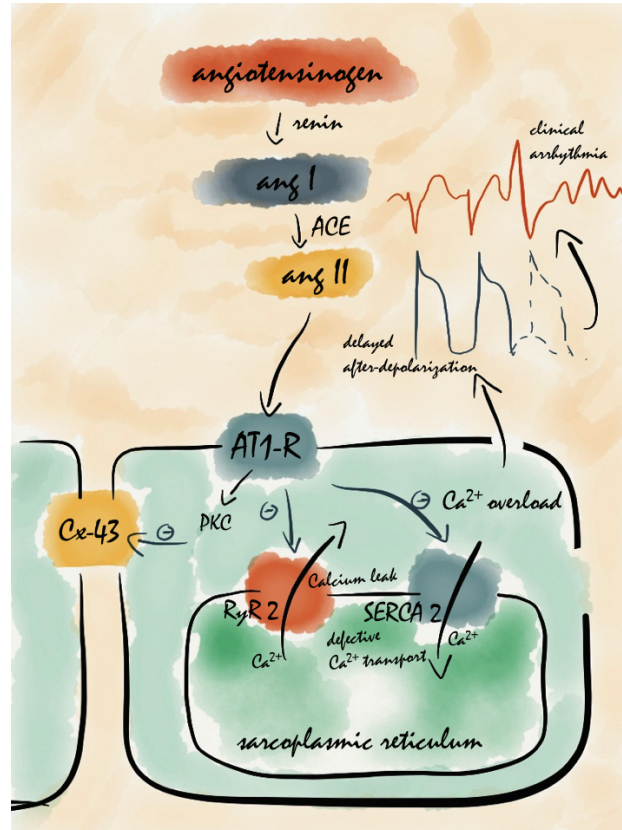 angiotensinogen
renin
ang I
ACE
ang II
clinical
arrhythmia
delayed
after-depolarization
AT1-R
PKC
⊖
Cx-43
⊖
⊖
Ca²⁺ overload
RyR 2
Calcium leak
SERCA 2
Ca²⁺
defective
Ca²⁺ transport
Ca²⁺
sarcoplasmic reticulum